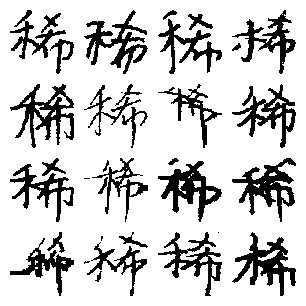 稀稀稀稀
稀稀稀稀
稀稀稀稀
稀稀稀稀